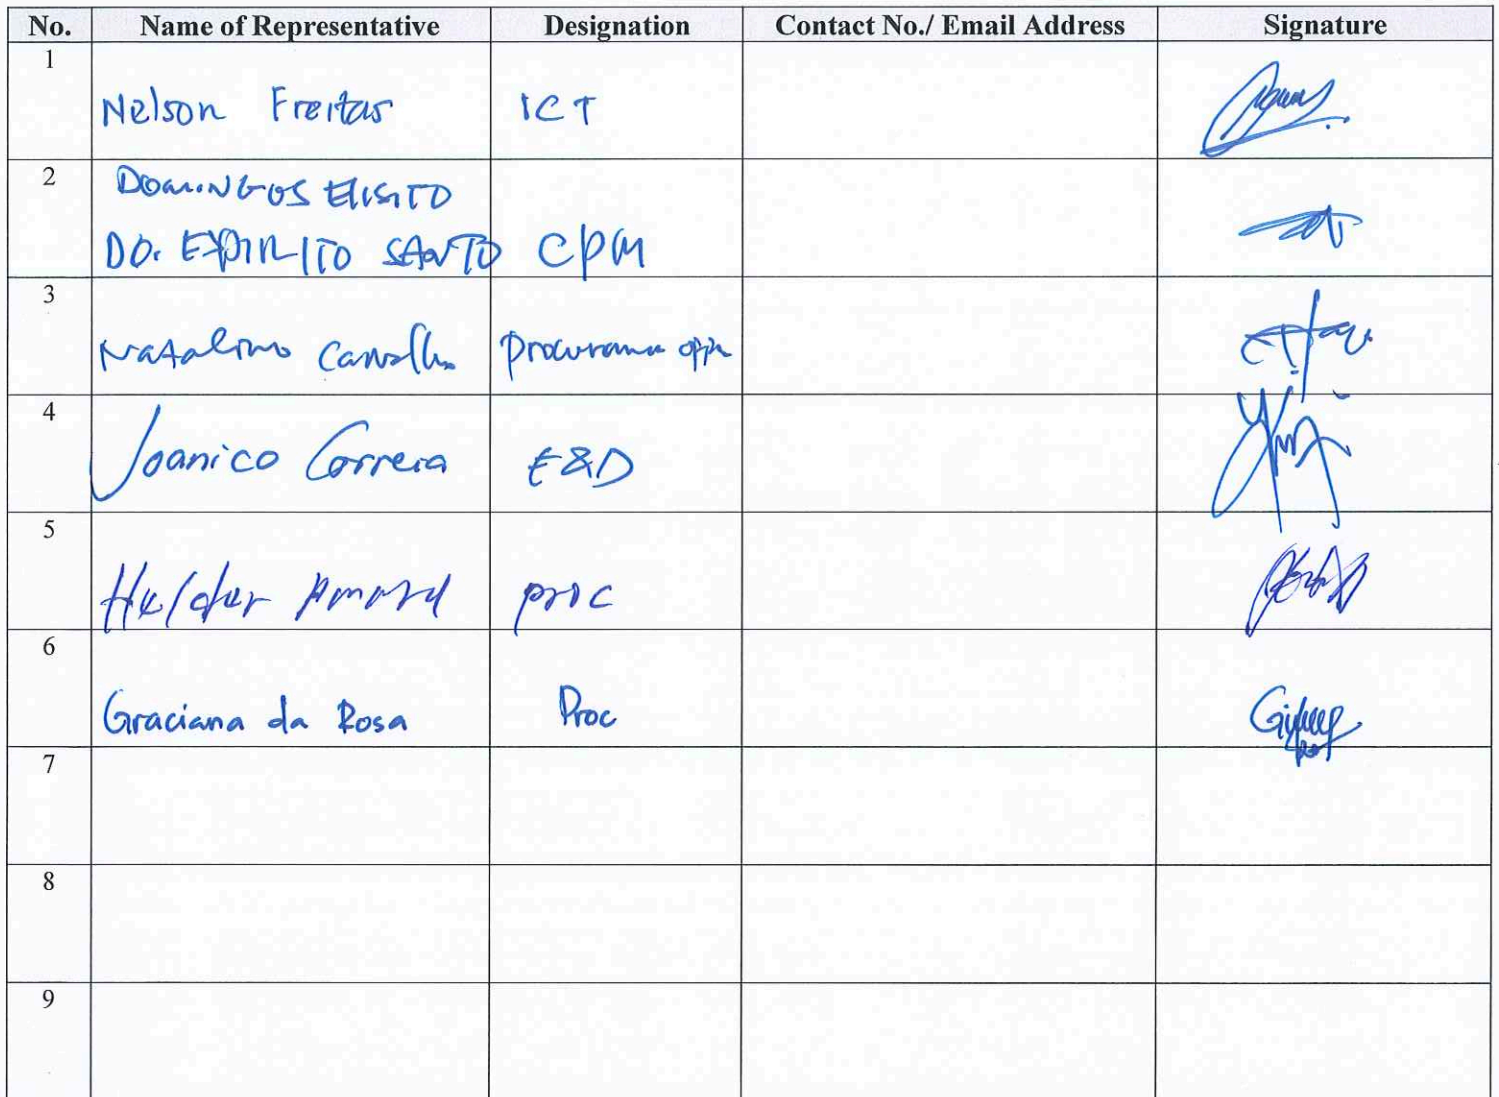 No. Name of Representative Designation Contact No./ Email Address Signature
1
Nelson Freitas ICT
2
DOMINGOS ELISITO
DO. EXPIRITO SANTO CPM
3
Natalino Carvalho Procurement
4
Joanico Correia E&D
5
Helder Amaral proc
6
Graciana da Rosa Proc
7
8
9